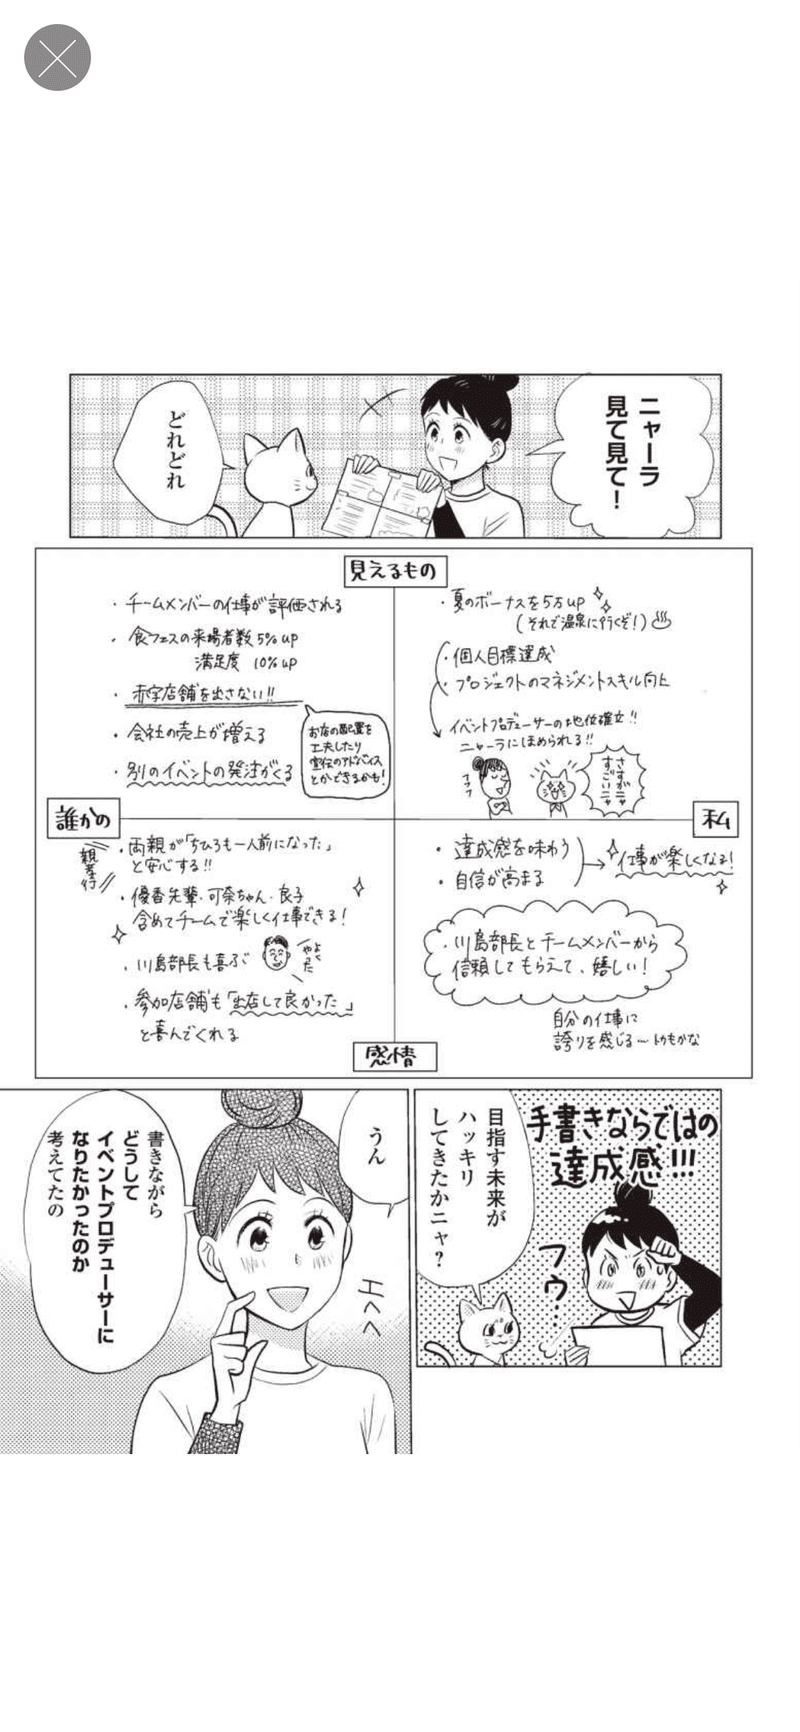 ニャーラ
見て見て！
どれどれ
見えるもの
・夏のボーナスを5万up
（それで温泉に行くぞ！）♨
・個人目標達成
・プロジェクトのマネジメントスキル向上
イベントプロデューサーの地位確立!!
ニャーラにほめられる!!
フフフ
さすがニャ
すごいニャ
・チームメンバーの仕事が評価される
・食フェスの来場者数5%up
満足度 10%up
・赤字店舗を出さない!!
お店の配置を
工夫したり
宣伝のアドバイス
とかできるかも!
・会社の売上が増える
・別のイベントの発注がくる
誰かの
私
・両親が「ちひろも一人前になった」
と安心する!!
親孝行
・優香先輩・可奈ちゃん・良子
含めてチームで楽しく仕事できる！
・川島部長も喜ぶ
よく
やった
・参加店舗も「出店して良かった」
と喜んでくれる
・達成感を味わう
・自信が高まる
仕事が楽しくなる!
・川島部長とチームメンバーから
信頼してもらえて、嬉しい！
自分の仕事に
誇りを感じる…トカもかな
感情
手書きならではの
達成感!!!
フウ…
目指す未来が
ハッキリ
してきたかニャ？
うん
エヘヘ
書きながら
どうして
イベントプロデューサーに
なりたかったのか
考えてたの